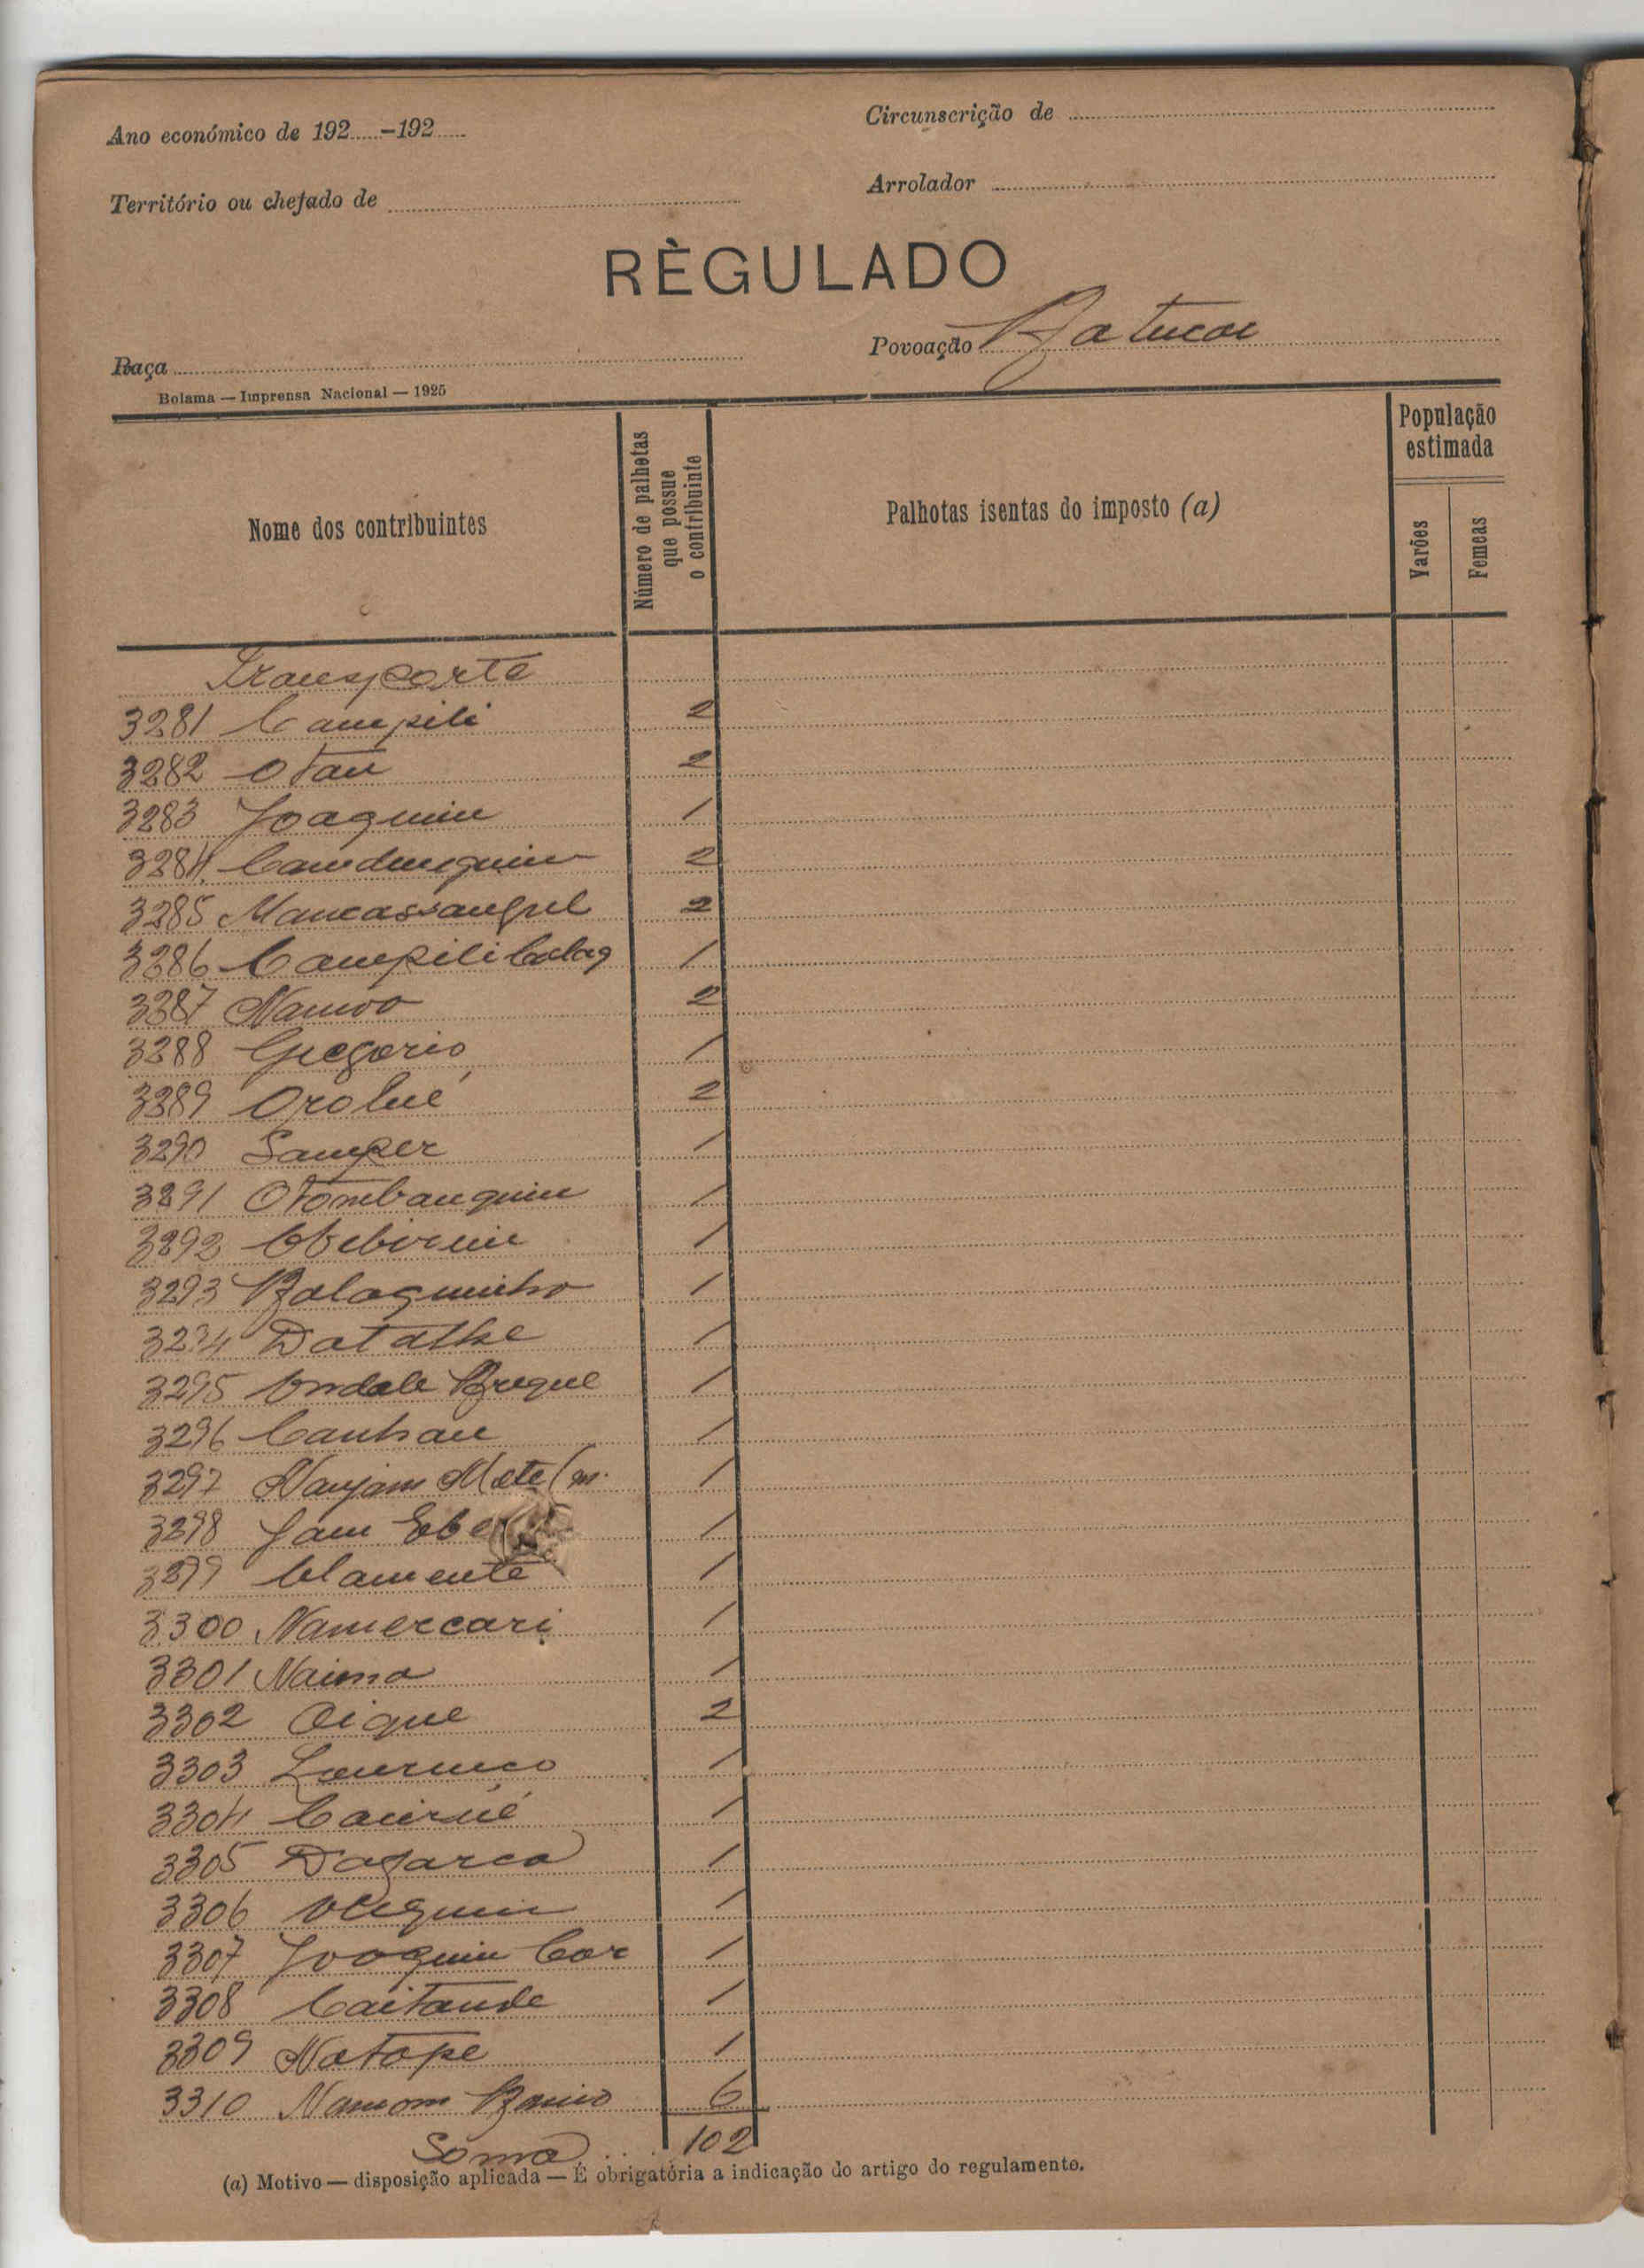 Ano económico de 192.....-192.....
Circunscrição de
Território ou chefado de
Arrolador
RÈGULADO
Raça
Povoação Batucar
Bolama — Imprensa Nacional — 1925
Nome dos contribuintes
Número de palhotas que possue o contribuinte
Palhotas isentas do imposto (a)
População estimada
Varões
Femeas
Transporte
3281 Campili 2
3282 Otan 2
3283 Joaquim 1
3284 2
3285 2
3286 Campili 1
3287 Namoo 2
3288 Gregorio 1
3289 2
3290 Samper 1
3291 Otombanquim 1
3292 1
3293 Balaguinho 1
3294 1
3295 1
3296 Canhan 1
3297 1
3298 1
3299 Clamente 1
3300 Namercari 1
3301 Naima 1
3302 Oique 2
3303 Lourenco 1
3304 1
3305 1
3306 1
3307 Joaquim Cor 1
3308 Caitande 1
3309 Natope 1
3310 6
Soma . . . 102
(a) Motivo — disposição aplicada — É obrigatória a indicação do artigo do regulamento.